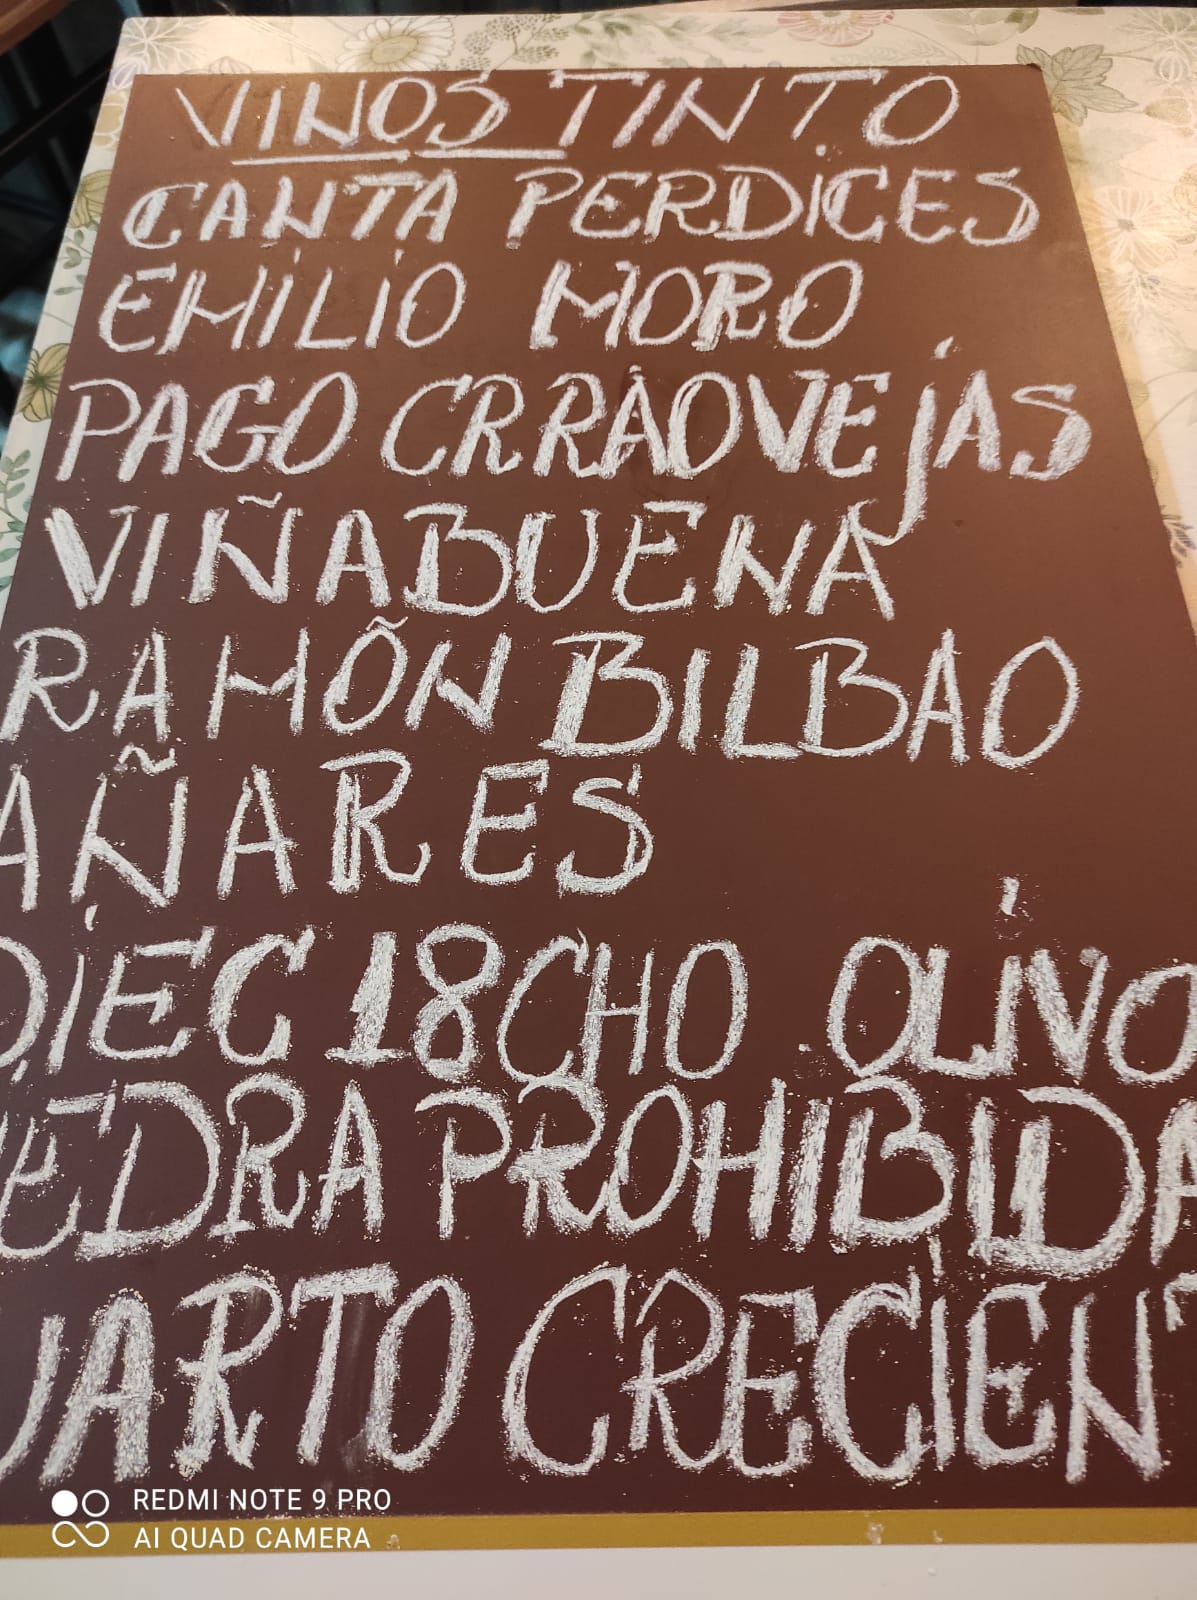 VINOS TINTO
CANTA PERDICES
EMILIO MORO
PAGO CRRAOVEjAS
VIÑABUENA
RAMÓN BILBAO
AÑARES
DIEC18CHO OLIVO
EDRA PROHIBIDA
UARTO CRECIENT
REDMI NOTE 9 PRO
AI QUAD CAMERA